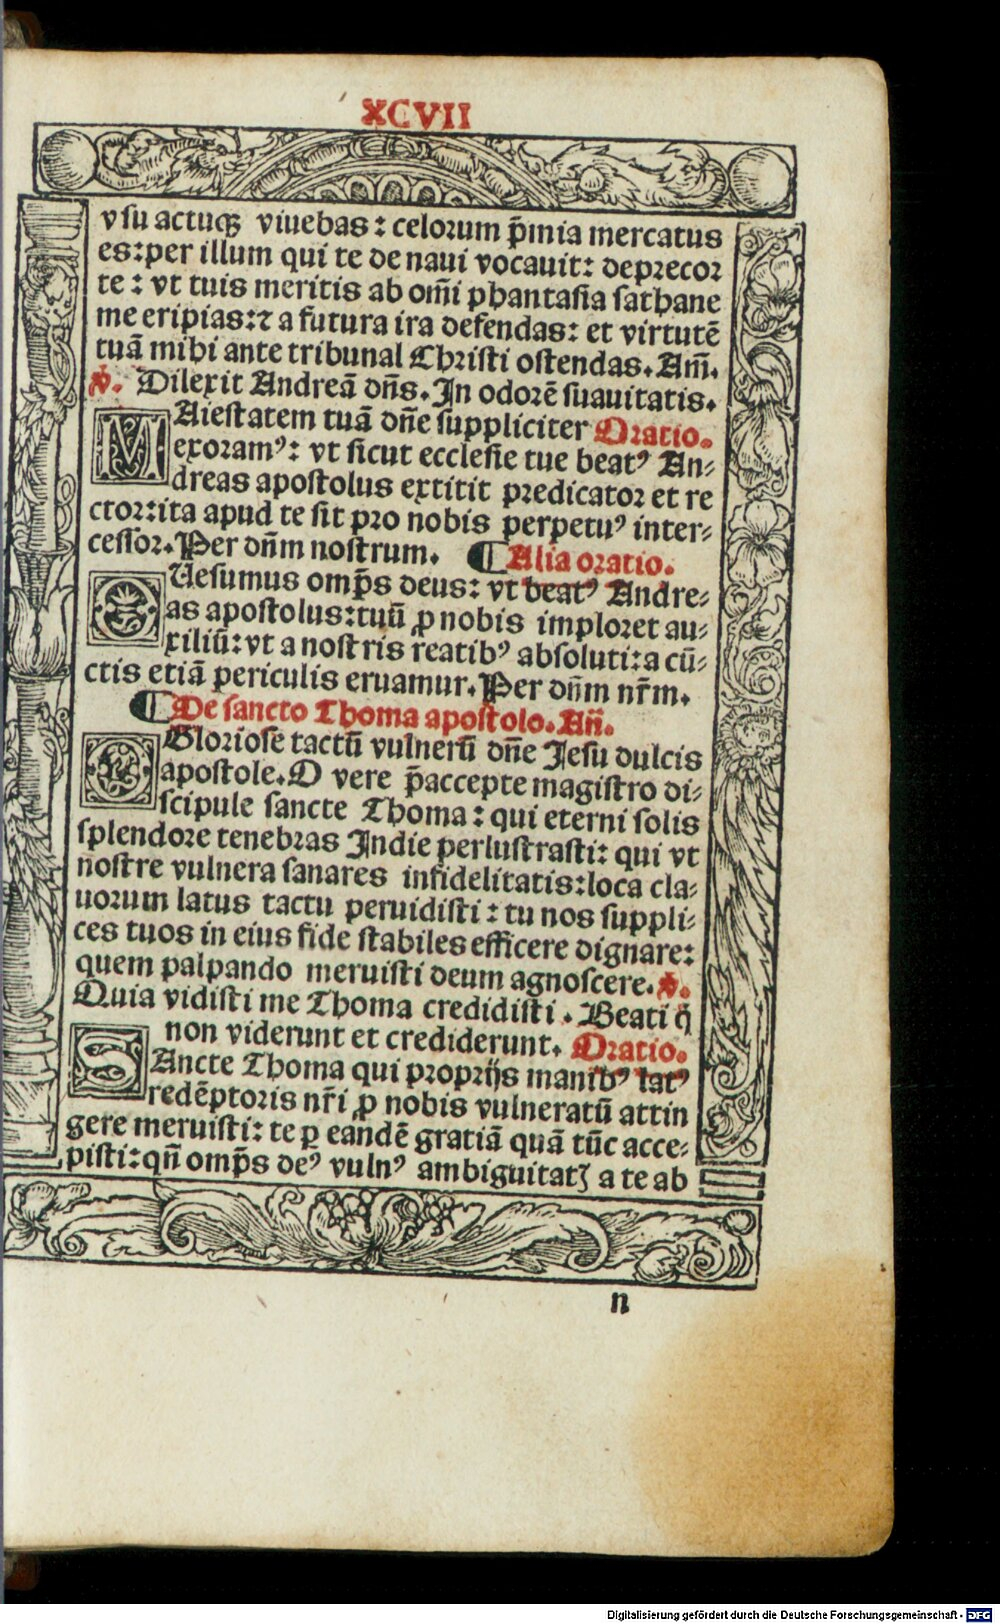 XCVII
vsu actuqꝫ viuebas: celorum p̄mia mercatus
es: per illum qui te de naui vocauit: deprecor
te: vt tuis meritis ab om̄i phantasia sathane
me eripias: ⁊ a futura ira defendas: et virtutē
tuā mihi ante tribunal Christi ostendas. Am̄.
℣. Dilexit Andreā dn̄s. In odorē suauitatis.
MAiestatem tuā dn̄e suppliciter Oratio.
exoramꝰ: vt sicut ecclesie tue beatꝰ An-
dreas apostolus extitit predicator et re
ctor: ita apud te sit pro nobis perpetuꝰ inter-
cessor. Per dn̄m nostrum. ¶ Alia oratio.
QUesumus omp̄s deus: vt beatꝰ Andre-
as apostolus: tuū ꝓ nobis imploret au-
xiliū: vt a nostris reatibꝰ absoluti: a cū-
ctis etiā periculis eruamur. Per dn̄m nr̄m.
¶ De sancto Thoma apostolo. An̄.
O Gloriose tactū vulnerū dn̄e Jesu dulcis
apostole. O vere p̄accepte magistro di-
scipule sancte Thoma: qui eterni solis
splendore tenebras Indie perlustrasti: qui vt
nostre vulnera sanares infidelitatis: loca cla-
uorum latus tactu peruidisti: tu nos suppli-
ces tuos in eius fide stabiles efficere dignare:
quem palpando meruisti deum agnoscere. ℣.
Quia vidisti me Thoma credidisti. Beati q̄
non viderunt et crediderunt. Oratio.
SAncte Thoma qui proprijs manibꝰ latꝰ
redēptoris nr̄i ꝓ nobis vulneratū attin
gere meruisti: te ꝑ eandē gratiā quā tūc acce-
pisti: qn̄ omp̄s deꝰ vulnꝰ ambiguitatꝭ a te ab
n
Digitalisierung gefördert durch die Deutsche Forschungsgemeinschaft - DFG